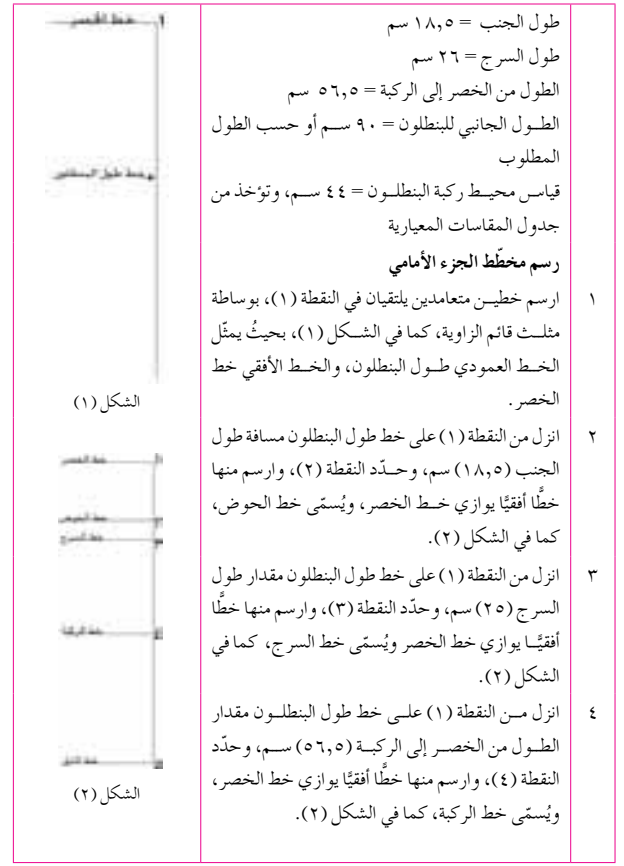 طول الجنب = ١٨,٥ سم
طول السرج = ٢٦ سم
الطول من الخصر إلى الركبة = ٥٦,٥ سم
الطول الجانبي للبنطلون = ٩٠ سم أو حسب الطول
المطلوب
قياس محيط ركبة البنطلون = ٤٤ سم، وتؤخذ من
جدول المقاسات المعيارية
رسم مخطّط الجزء الأمامي
١ ارسم خطين متعامدين يلتقيان في النقطة (١)، بوساطة
مثلث قائم الزاوية، كما في الشكل (١)، بحيثُ يمثّل
الخط العمودي طول البنطلون، والخط الأفقي خط
الخصر.
٢ انزل من النقطة (١) على خط طول البنطلون مسافة طول
الجنب (١٨,٥) سم، وحدّد النقطة (٢)، وارسم منها
خطًّا أفقيًّا يوازي خط الخصر، ويُسمّى خط الحوض،
كما في الشكل (٢).
٣ انزل من النقطة (١) على خط طول البنطلون مقدار طول
السرج (٢٥) سم، وحدّد النقطة (٣)، وارسم منها خطًّا
أفقيًّا يوازي خط الخصر ويُسمّى خط السرج، كما في
الشكل (٢).
٤ انزل من النقطة (١) على خط طول البنطلون مقدار
الطول من الخصر إلى الركبة (٥٦,٥) سم، وحدّد
النقطة (٤)، وارسم منها خطًّا أفقيًّا يوازي خط الخصر،
ويُسمّى خط الركبة، كما في الشكل (٢).
خط الخصر
١
خط طول البنطلون
الشكل (١)
خط الخصر
خط الحوض
خط السرج
خط الركبة
الشكل (٢)